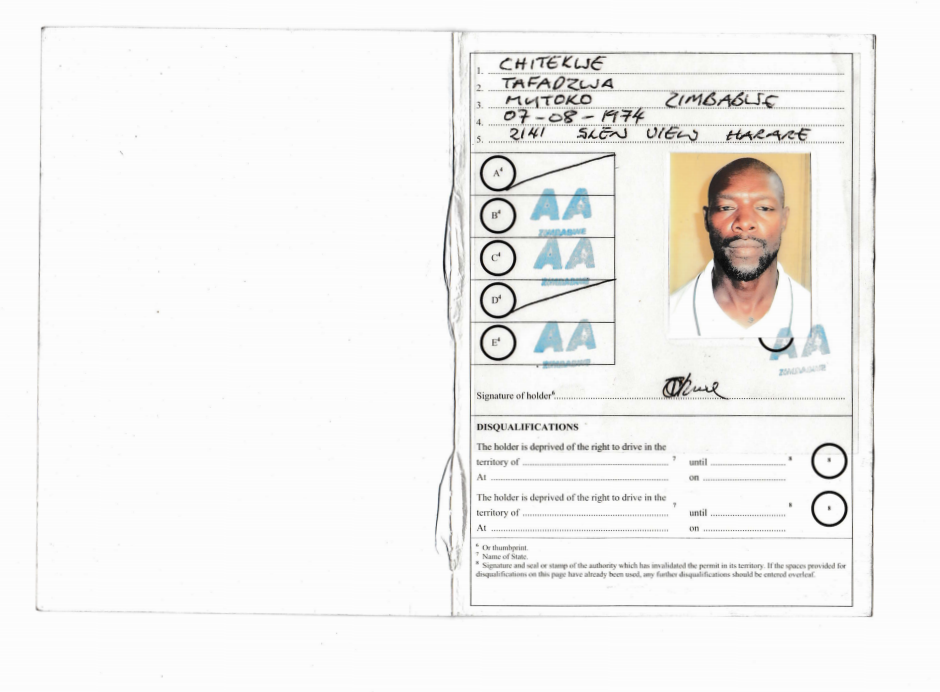 1. CHITEKWE
2. TAFADZWA
3. MUTOKO ZIMBABWE
4. 07-08-1974
5. 2141 GLEN VIEW HARARE
A⁴
B⁴ AA ZIMBABWE
C⁴ AA ZIMBABWE
D⁴
E⁴ AA ZIMBABWE
AA ZIMBABWE
Signature of holder⁶
DISQUALIFICATIONS
The holder is deprived of the right to drive in the
territory of ⁷ until ⁸ 8
At on
The holder is deprived of the right to drive in the
territory of ⁷ until ⁸ 8
At on
⁶ Or thumbprint.
⁷ Name of State.
⁸ Signature and seal or stamp of the authority which has invalidated the permit in its territory. If the spaces provided for
disqualifications on this page have already been used, any further disqualifications should be entered overleaf.